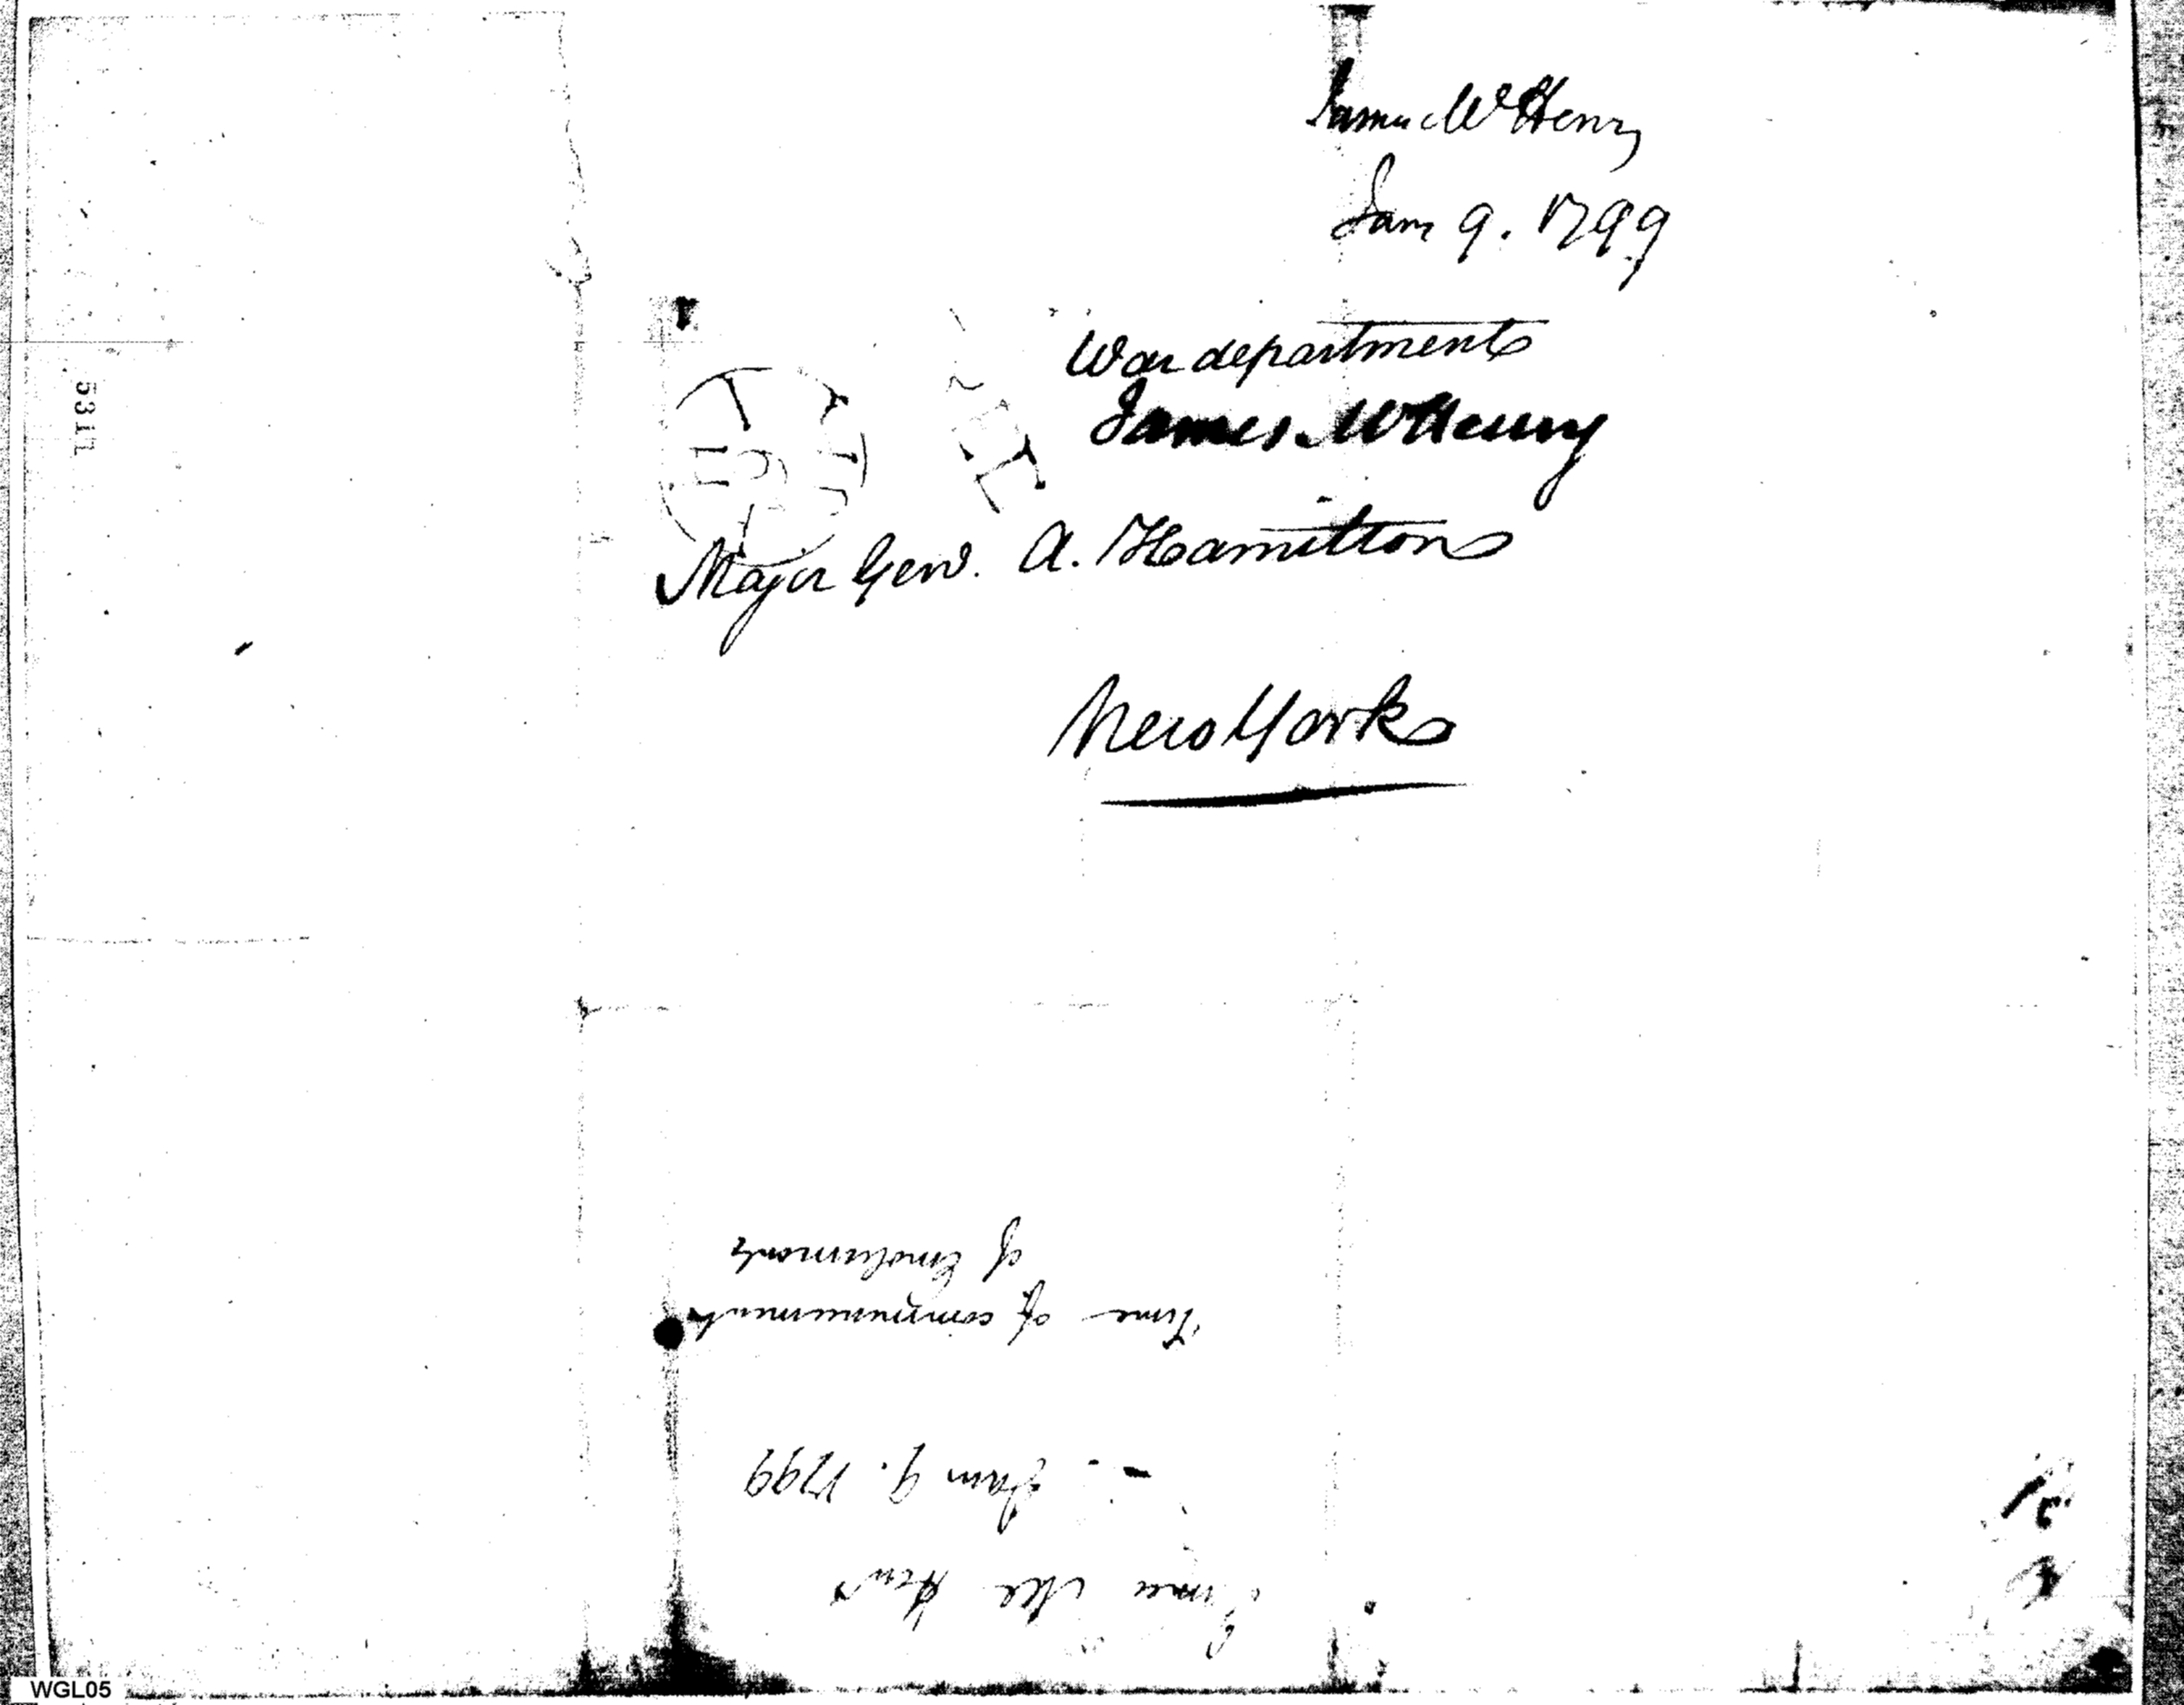 James McHenry
Jan 9. 1799
War department
James McHenry
Major Genl. A. Hamilton
New York
5311
James McHenry
Jan 9. 1799
Time of commencement
of Emoluments
WGL05